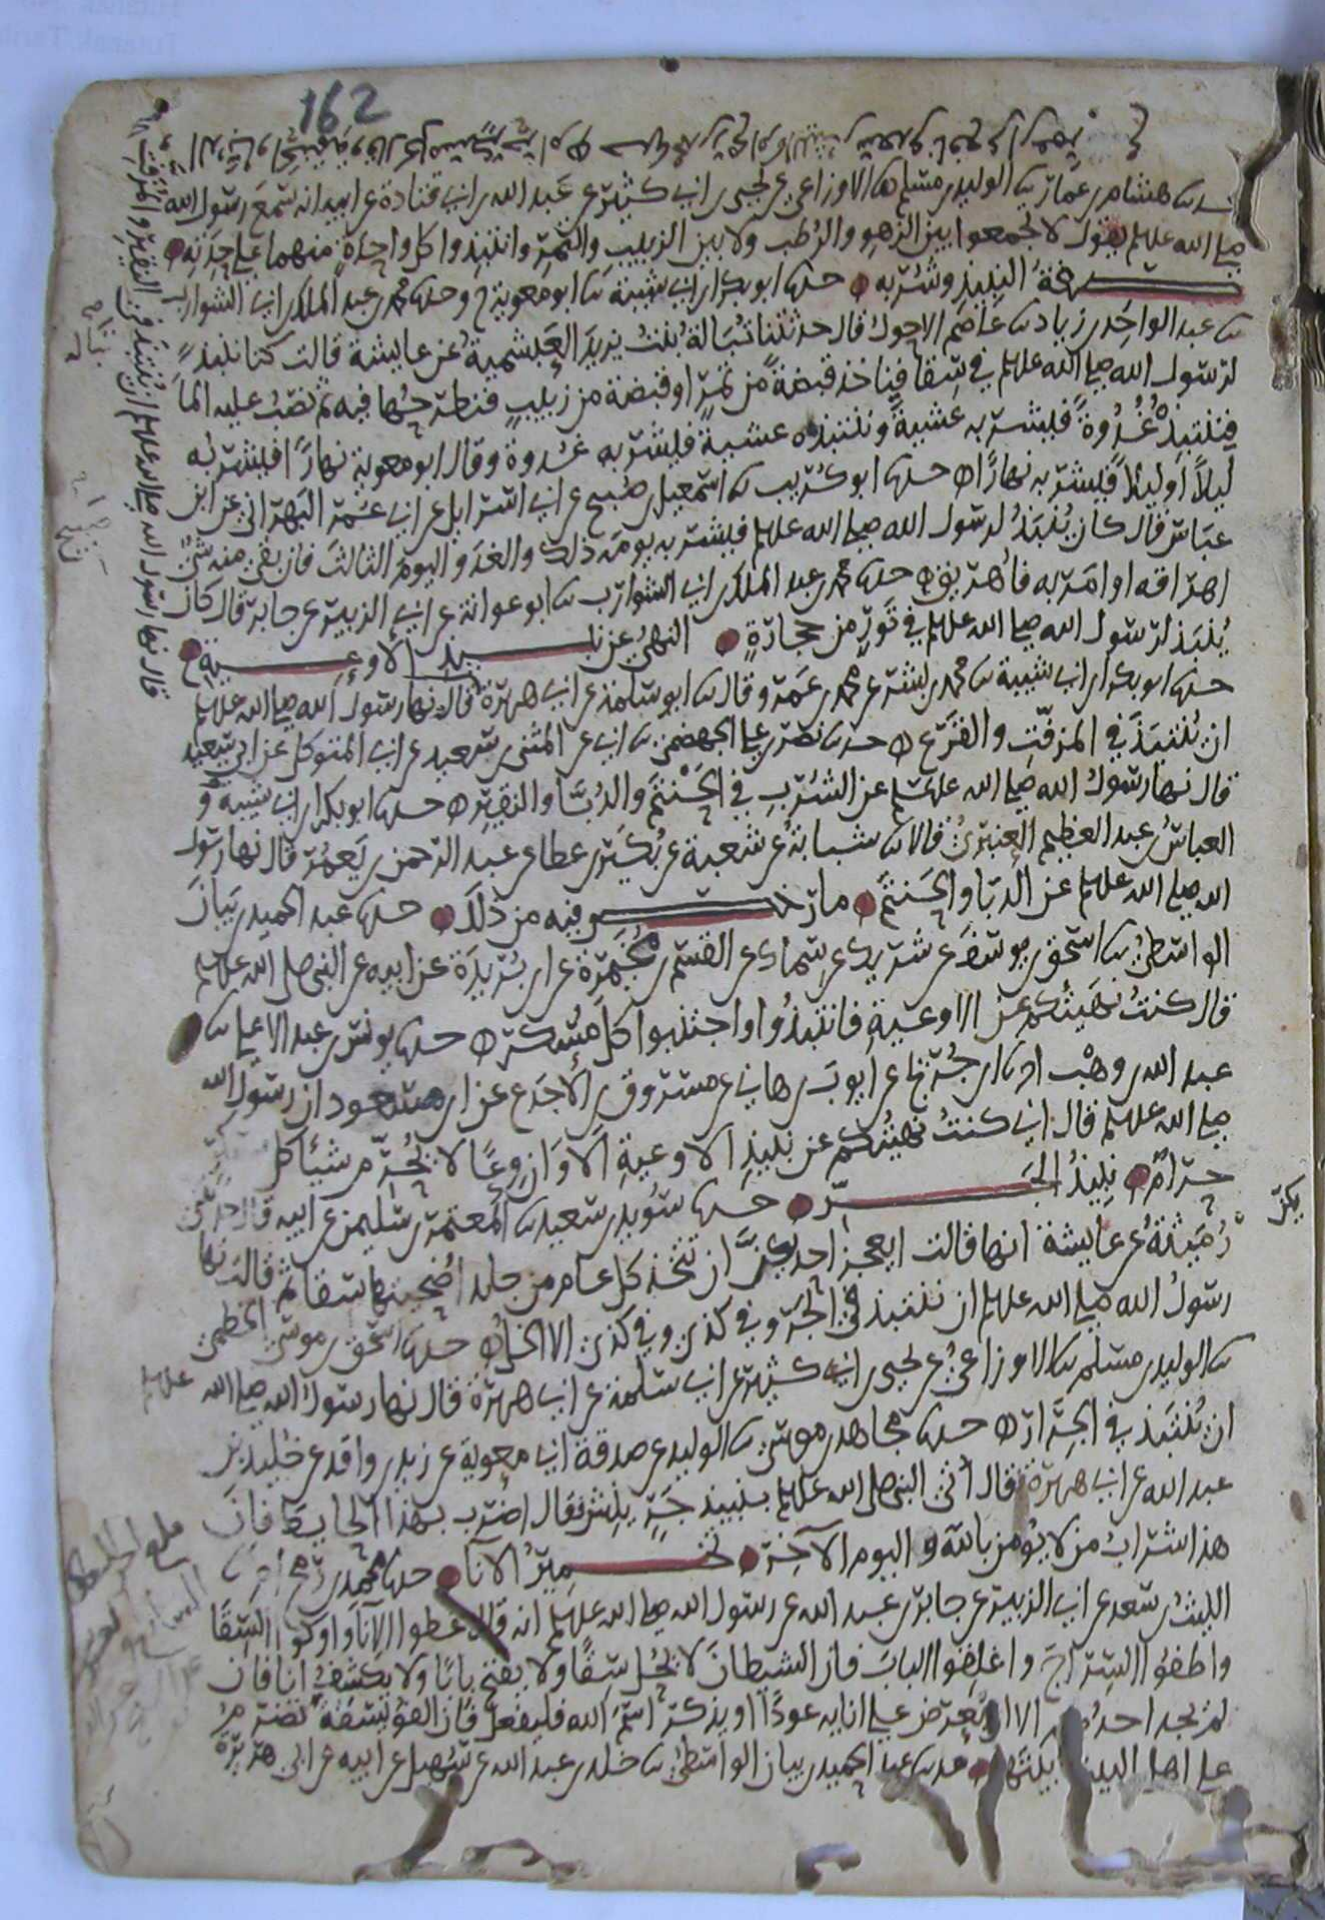 162
هشام بن عمار ثنا الوليد بن مسلم ثنا الاوزاعي عن يحيى بن ابي كثير عن عبد الله بن ابي قتادة عن ابيه انه سمع رسول الله
صلى الله عليه وسلم يقول لا تجمعوا بين الزهو والرطب ولا بين الزبيب والتمر وانتبذوا كل واحدة منهما على حدته
صفة النبيذ وشربه حدثنا ابو بكر بن ابي شيبة ثنا ابو معوية ح وحدثنا محمد بن عبد الملك بن ابي الشوارب
ثنا عبد الواحد بن زياد ثنا عاصم الاحول قال حدثتنا تبالة بنت يزيد العبشمية عن عايشة قالت كنا ننبذ
لرسول الله صلى الله عليه وسلم في سقا فناخذ قبضة من تمر او قبضة من زبيب فنطرحها فيه ثم نصب عليه الما
فننتبذه غدوة فيشربه عشية وننتبذه عشية فيشربه غدوة وقال ابو معوية نهارا فيشربه
ليلا او ليلا فيشربه نهارا حدثنا ابو كريب ثنا اسمعيل بن صبيح عن ابي اسرايل عن ابي عمر البهراني عن ابن
عباس قال كان ينبذ لرسول الله صلى الله عليه وسلم فيشربه يومه ذلك والغد واليوم الثالث فان بقي منه شي
اهراقه او امر به فاهريق حدثنا محمد بن عبد الملك بن ابي الشوارب ثنا ابو عوانة عن ابي الزبير عن جابر قال كان
ينبذ لرسول الله صلى الله عليه وسلم في تور من حجارة النهي عن نبيذ الاوعية
حدثنا ابو بكر بن ابي شيبة ثنا محمد بن بشر عن محمد بن عمر وقال ثنا ابو سلمة عن ابي هريرة قال نها رسول الله صلى الله عليه وسلم
ان ينتبذ في المزفت والقرع حدثنا نصر بن علي الجهضمي ثنا ابي عن المثنى بن سعيد عن ابي المتوكل عن ابي سعيد
قال نها رسول الله صلى الله عليه وسلم عن الشرب في الحنتم والدبا والنقير حدثنا ابو بكر بن ابي شيبة و
العباس بن عبد العظيم العنبري قالا ثنا شبابة عن شعبة عن بكير بن عطا عن عبد الرحمن بن يعمر قال نها رسول
الله صلى الله عليه وسلم عن الدبا والحنتم ما رخص فيه من ذلك حدثنا عبد الحميد بن بيان
الواسطي ثنا اسحق بن يوسف عن شريك عن سماك عن القسم بن مخيمرة عن ابن بريدة عن ابيه عن النبي صلى الله عليه وسلم
قال كنت نهيتكم عن الاوعية فانتبذوا واجتنبوا كل مسكر حدثنا يونس بن عبد الاعلى ثنا
عبد الله بن وهب ابنا ابن جريج عن ايوب بن هاني عن مسروق بن الاجدع عن ابن مسعود ان رسول الله
صلى الله عليه وسلم قال اني كنت نهيتكم عن نبيذ الاوعية الا وان وعا لا يحرم شيئا كل
حرام نبيذ الجر حدثنا سويد بن سعيد ثنا المعتمر بن سليمن عن ابيه قال حدثتني
رميثة عن عايشة انها قالت ايعجز احديكن ان تتخذ كل عام من جلد اضحيتها سقا ثم قالت نها
رسول الله صلى الله عليه وسلم ان ننتبذ في الجر وفي كذي وفي كذي الا الخل حدثنا اسحق بن موسى الخطمي
ثنا الوليد بن مسلم ثنا الاوزاعي عن يحيى بن ابي كثير عن ابي سلمة عن ابي هريرة قال نها رسول الله صلى الله عليه وسلم
ان ينتبذ في الجرار حدثنا مجاهد بن موسى ثنا الوليد عن صدقة ابي معوية عن زيد بن واقد عن خليد بن
عبد الله عن ابي هريرة قال اتي النبي صلى الله عليه وسلم بنبيذ جر ينش فقال اضرب بهذا الحايط فان
هذا شراب من لا يومن بالله واليوم الآخر تخمير الانا حدثنا محمد بن رمح
الليث بن سعد عن ابي الزبير عن جابر بن عبد الله عن رسول الله صلى الله عليه وسلم انه قال غطوا الانا واوكوا السقا
واطفوا السراج واغلقوا الباب فان الشيطان لا يحل سقا ولا يفتح بابا ولا يكشف انا فان
لم يجد احدكم الا ان يعرض على انايه عودا او يذكر اسم الله فليفعل فان الفويسقة تضرم
على اهل البيت بيتهم حدثنا عبد الحميد بن بيان الواسطي ثنا خلد بن عبد الله عن سهيل عن ابيه عن ابي هريرة
قال نها رسول الله صلى الله عليه وسلم ان ينتبذ في النقير والمزفت